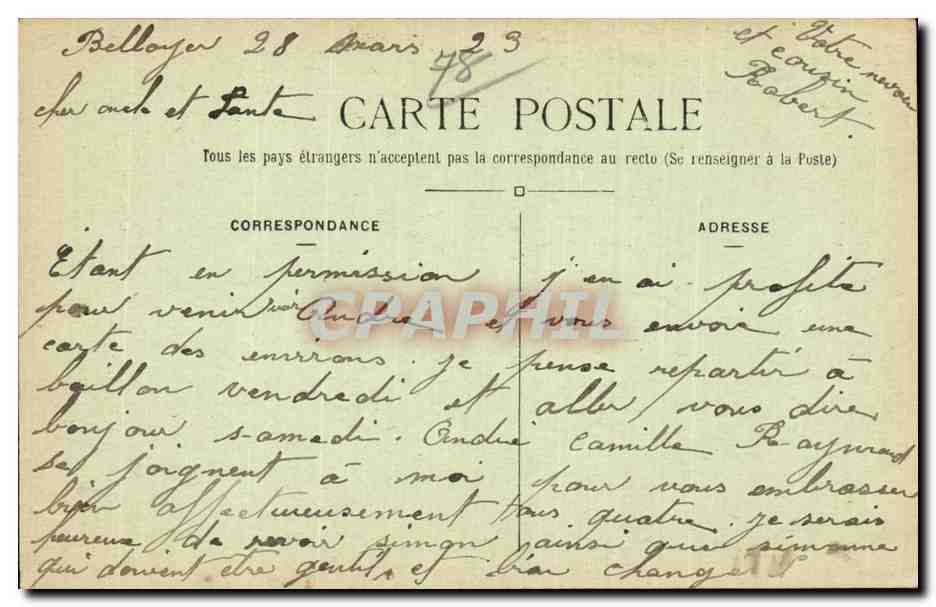 Belloyer 28 mars 23
78
cher oncle et Tante
CARTE POSTALE
Tous les pays étrangers n'acceptent pas la correspondance au recto (Se renseigner à la Poste)
CORRESPONDANCE
ADRESSE
Étant en permission j'en ai profite
pour venir voir André et vous envoie une
carte des environs. je pense repartir à
baillon vendredi et aller vous dire
bonjour samedi. André Camille Raymond
se joignent à moi pour vous embrasser
bien affectueusement tous quatre. je serais
heureux de revoir simon ainsi que simonne
qui doivent etre gentils et bien changer
Votre neveu
et cousin
Robert.
CPAPHIL